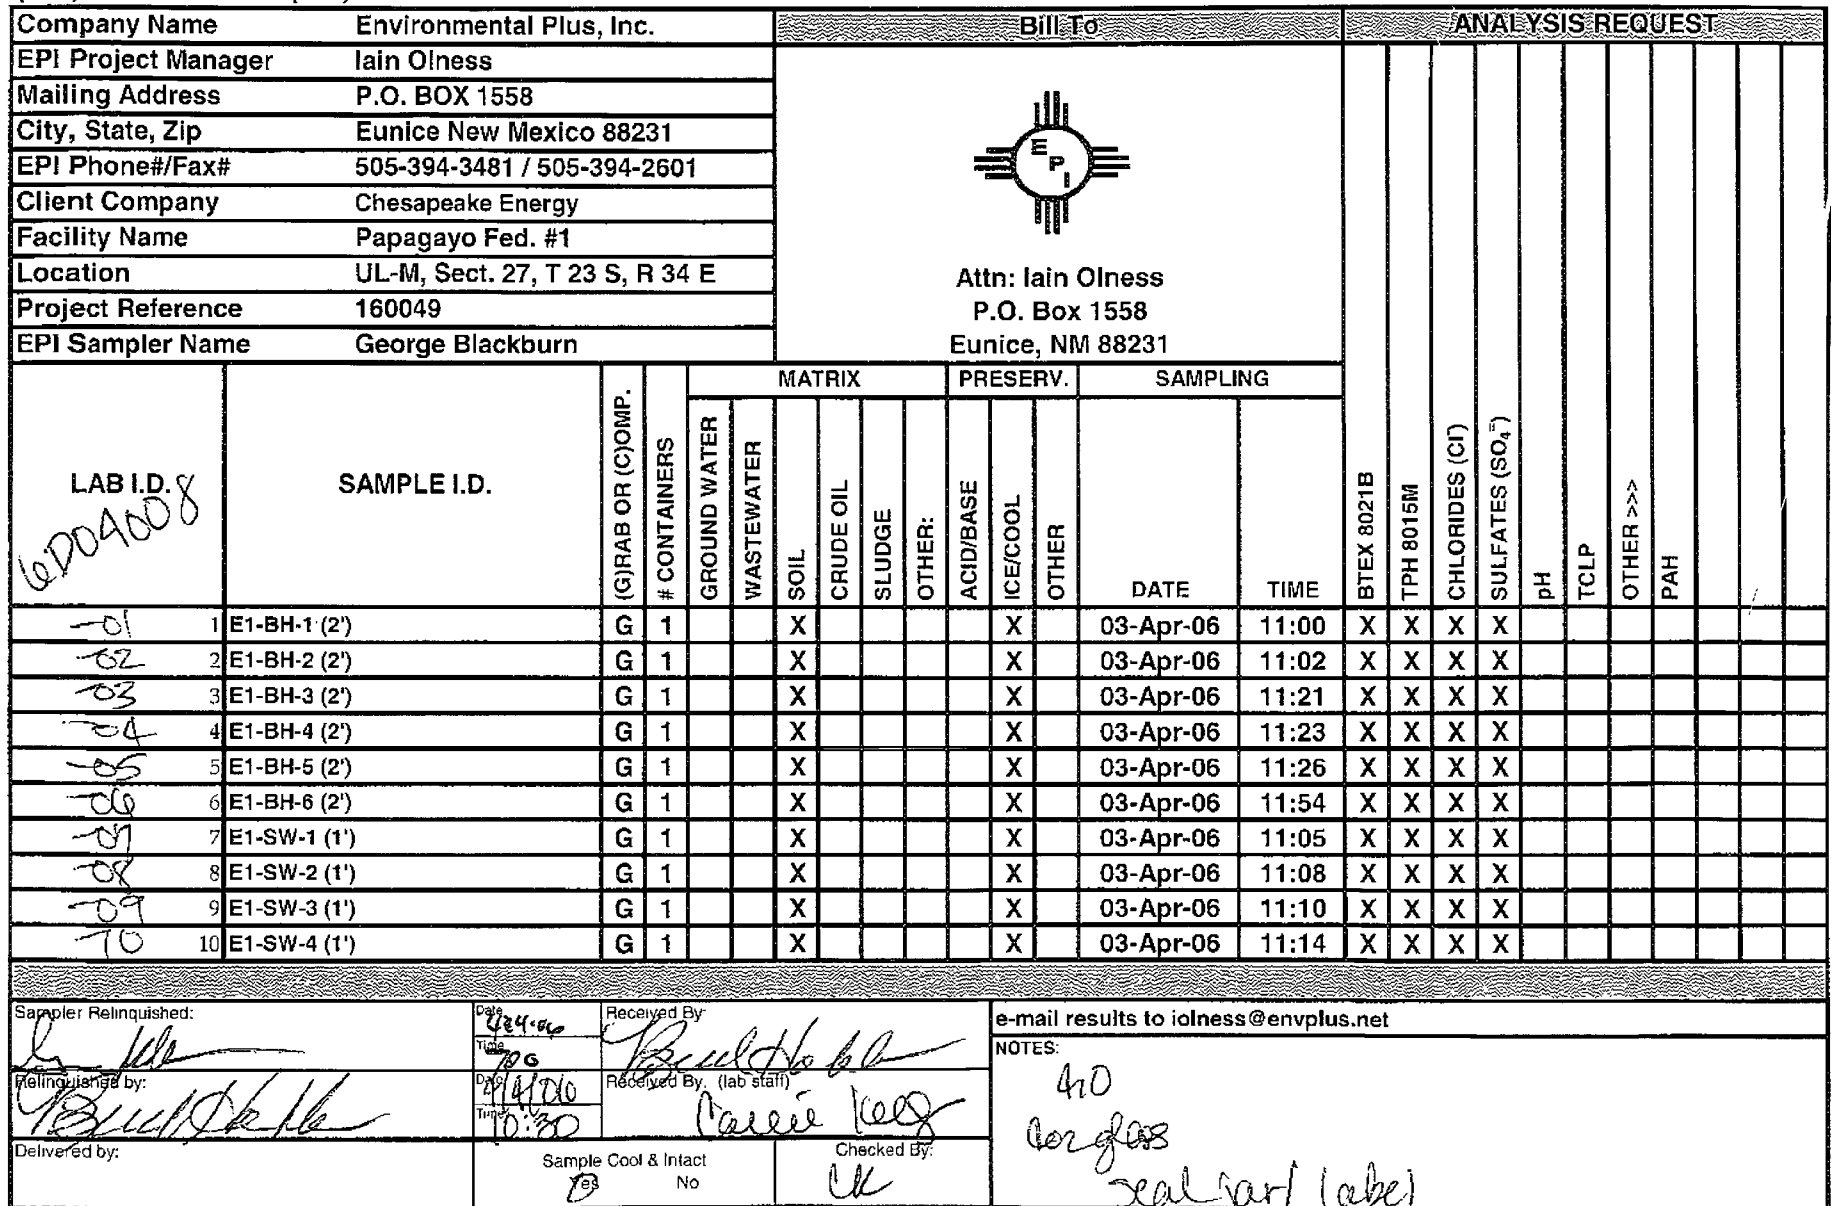 Company Name Environmental Plus, Inc. Bill To ANALYSIS REQUEST
EPI Project Manager Iain Olness
Mailing Address P.O. BOX 1558
City, State, Zip Eunice New Mexico 88231
EPI Phone#/Fax# 505-394-3481 / 505-394-2601
Client Company Chesapeake Energy
Facility Name Papagayo Fed. #1
Location UL-M, Sect. 27, T 23 S, R 34 E
Project Reference 160049
EPI Sampler Name George Blackburn
E P I
Attn: Iain Olness
P.O. Box 1558
Eunice, NM 88231
MATRIX PRESERV. SAMPLING
LAB I.D. SAMPLE I.D. (G)RAB OR (C)OMP. # CONTAINERS GROUND WATER WASTEWATER SOIL CRUDE OIL SLUDGE OTHER: ACID/BASE ICE/COOL OTHER DATE TIME BTEX 8021B TPH 8015M CHLORIDES (Cl⁻) SULFATES (SO₄⁼) pH TCLP OTHER >>> PAH
6D04008
-01 1 E1-BH-1 (2') G 1 X X 03-Apr-06 11:00 X X X X
-02 2 E1-BH-2 (2') G 1 X X 03-Apr-06 11:02 X X X X
-03 3 E1-BH-3 (2') G 1 X X 03-Apr-06 11:21 X X X X
-04 4 E1-BH-4 (2') G 1 X X 03-Apr-06 11:23 X X X X
-05 5 E1-BH-5 (2') G 1 X X 03-Apr-06 11:26 X X X X
-06 6 E1-BH-6 (2') G 1 X X 03-Apr-06 11:54 X X X X
-07 7 E1-SW-1 (1') G 1 X X 03-Apr-06 11:05 X X X X
-08 8 E1-SW-2 (1') G 1 X X 03-Apr-06 11:08 X X X X
-09 9 E1-SW-3 (1') G 1 X X 03-Apr-06 11:10 X X X X
-10 10 E1-SW-4 (1') G 1 X X 03-Apr-06 11:14 X X X X
Sampler Relinquished: Date Received By
Time
e-mail results to iolness@envplus.net
NOTES:
4.0
glass
seal jar/ label
Relinquished by: Date 4/4/06 Received By. (lab staff)
Time 10:30
Delivered by: Sample Cool & Intact Checked By:
Yes No CK